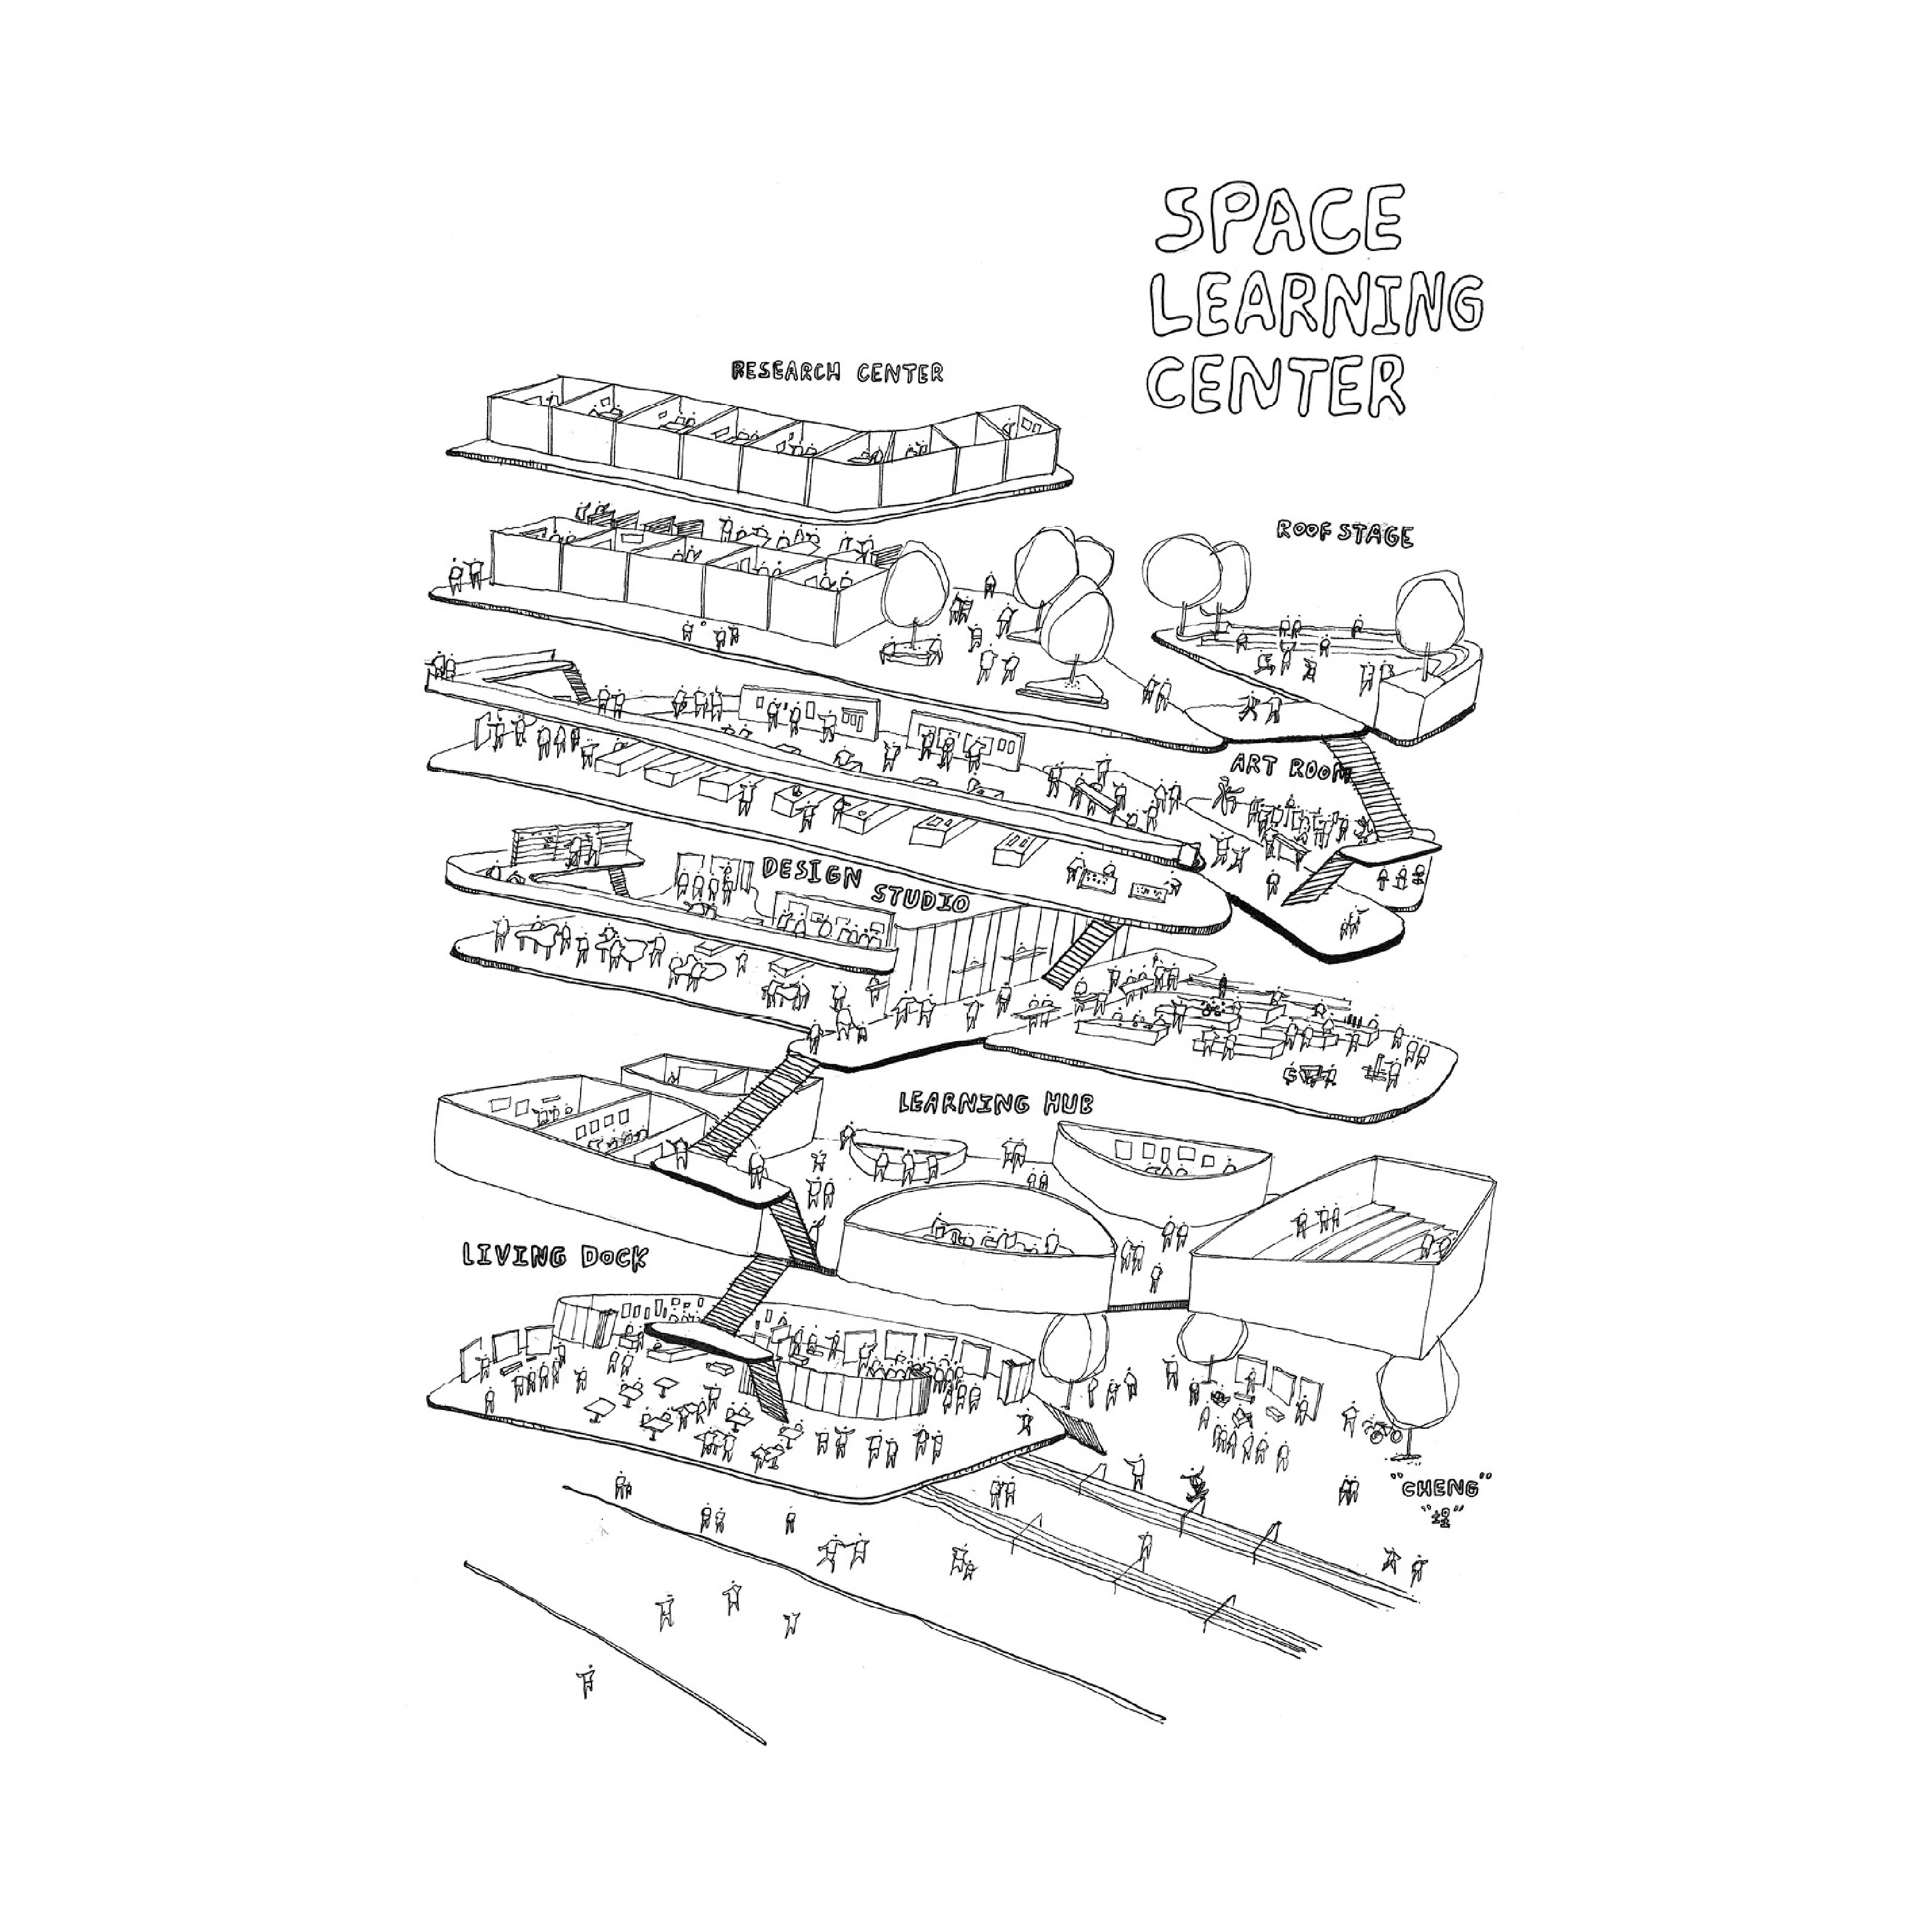 SPACE
LEARNING
CENTER
RESEARCH CENTER
ROOF STAGE
ART ROOM
DESIGN STUDIO
LEARNING HUB
LIVING DOCK
"CHENG"